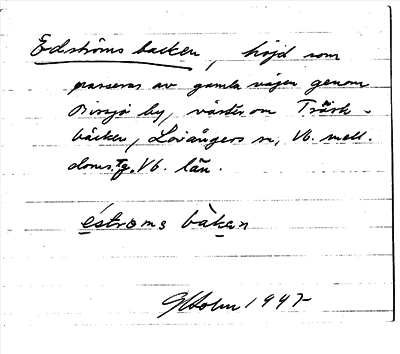 Edströms backen, höjd som
passeras av gamla vägen genom
Bissjö by, väster om Träsk-
bäcken, Lövångers sn, Vb. mell.
doms.tg. Vb. län.
éstroms bàkan
Holm 1947